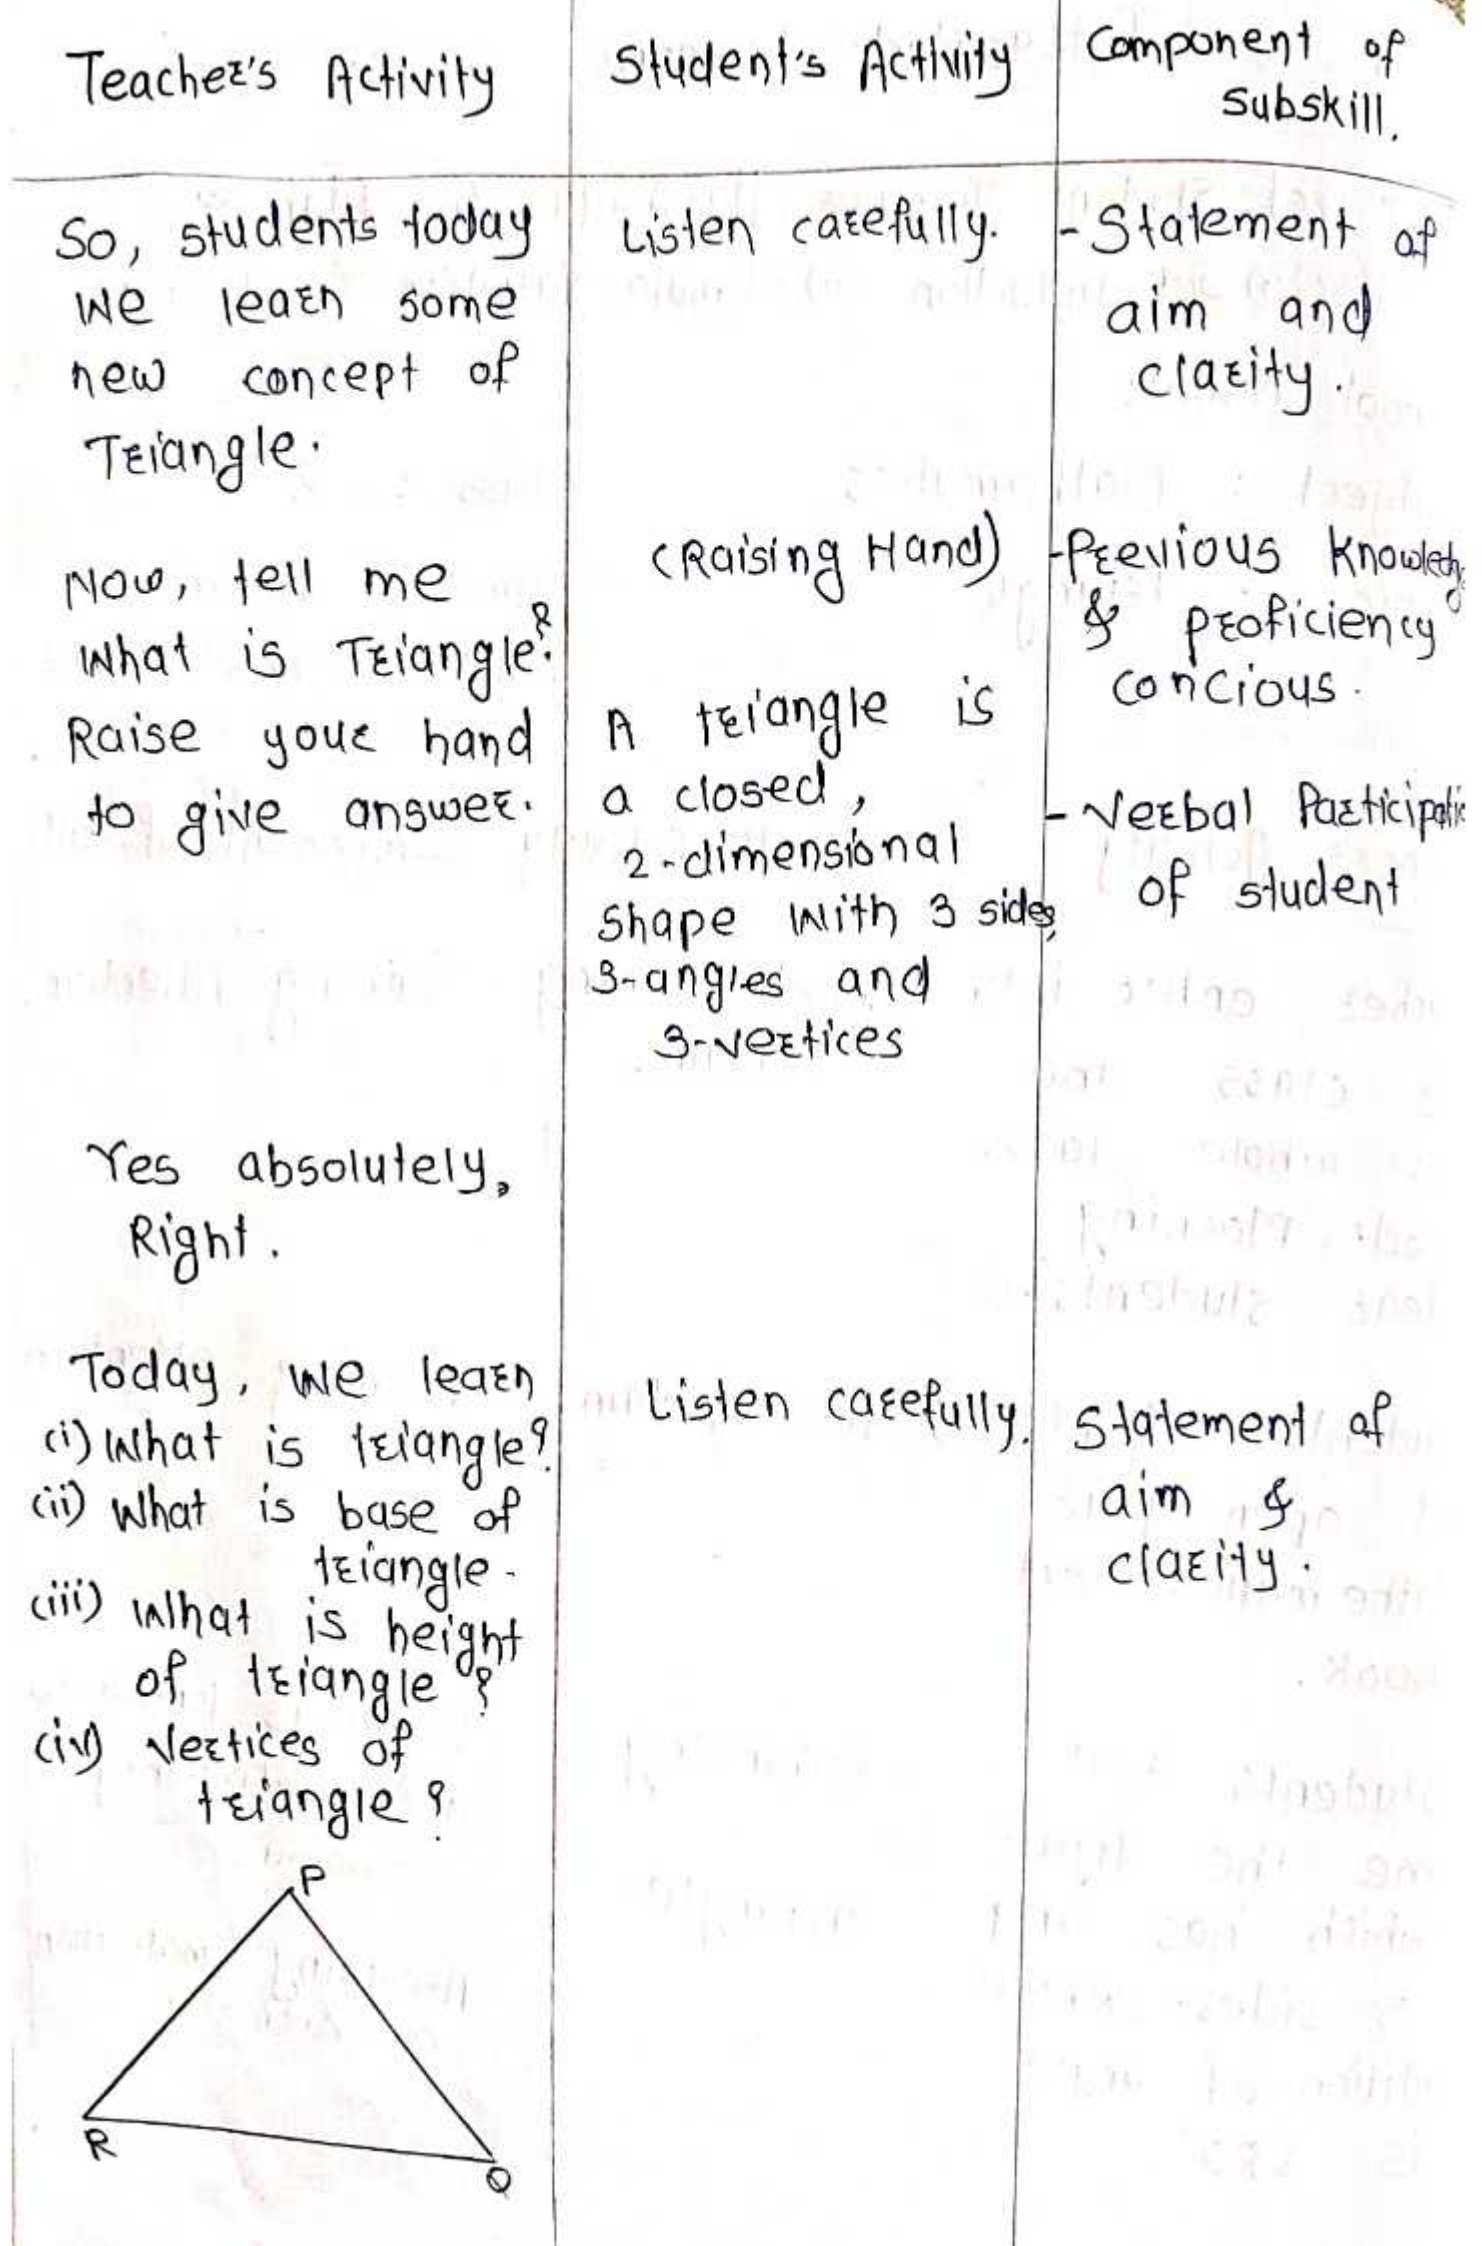 Teacher's Activity
Student's Activity
Component of
Subskill.
So, students today
we learn some
new concept of
Triangle.
Listen carefully.
- Statement of
aim and
clarity.
Now, tell me
What is Triangle?
Raise your hand
to give answer.
(Raising Hand)
A triangle is
a closed,
2-dimensional
shape with 3 sides,
3-angles and
3-vertices
- Previous
& proficiency
concious.
- Verbal
of student
Yes absolutely,
Right.
Today, we learn
(i) What is triangle?
(ii) What is base of
triangle.
(iii) What is height
of triangle?
(iv) Vertices of
triangle?
Listen carefully.
Statement of
aim &
clarity.
P
R
Q